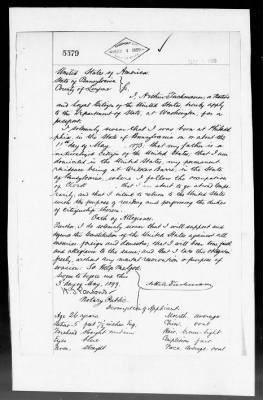 5379
United States of America
State of Pennsylvania
County of Luzerne } ss.
I, Arthur Tuchmann, a Native
and Loyal Citizen of the United States, hereby apply
to the Department of State, at Washington, for a
passport.
I solemnly swear that I was born at Philadel
phia, in the State of Pennsylvania on or about the
11th day of May 1873, that my father is a
naturalized Citizen of the United States, that I am
domiciled in the United States, my permanent
residence being at Wilkes Barre, in the State
of Pennsylvania, where I follow the occupation
of Clerk that I am about to go abroad tempo
rarily, and that I intend to return to the United States
with the purpose of residing and performing the duties
of citizenship therein.
Oath of Allegiance.
Further, I do solemnly swear that I will support and
defend the Constitution of the United States against all
enemies foreign and domestic; that I will bear true faith
and allegiance to the same; and that I take this obligation
freely, without any mental reservation or purpose of
evasion. So help me God.
Sworn to before me this
day of May, 1899.
Notary Public.
Description of Applicant.
Age 26 years Mouth average
Stature 5 feet 7½ inches Eng. Chin oval
Forehead straight Hair brown
Eyes blue Complexion fair
Nose straight Face average oval